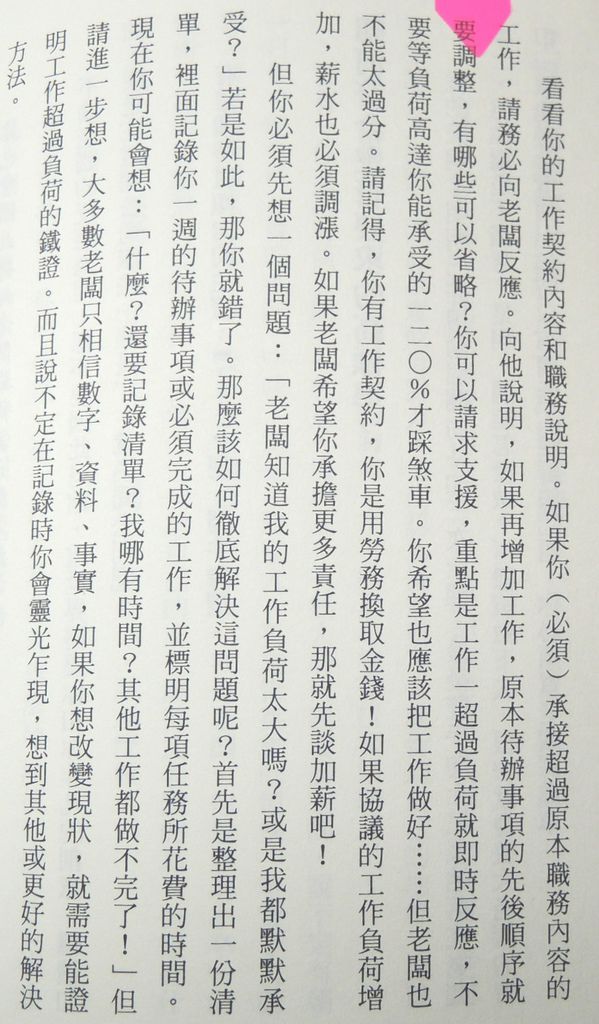 看看你的工作契約內容和職務說明。如果你（必須）承接超過原本職務內容的
工作，請務必向老闆反應。向他說明，如果再增加工作，原本待辦事項的先後順序就
要調整，有哪些可以省略？你可以請求支援，重點是工作一超過負荷就即時反應，不
要等負荷高達你能承受的一二〇％才踩煞車。你希望也應該把工作做好……但老闆也
不能太過分。請記得，你有工作契約，你是用勞務換取金錢！如果協議的工作負荷增
加，薪水也必須調漲。如果老闆希望你承擔更多責任，那就先談加薪吧！
但你必須先想一個問題：「老闆知道我的工作負荷太大嗎？或是我都默默承
受？」若是如此，那你就錯了。那麼該如何徹底解決這問題呢？首先是整理出一份清
單，裡面記錄你一週的待辦事項或必須完成的工作，並標明每項任務所花費的時間。
現在你可能會想：「什麼？還要記錄清單？我哪有時間？其他工作都做不完了！」但
請進一步想，大多數老闆只相信數字、資料、事實，如果你想改變現狀，就需要能證
明工作超過負荷的鐵證。而且說不定在記錄時你會靈光乍現，想到其他或更好的解決
方法。